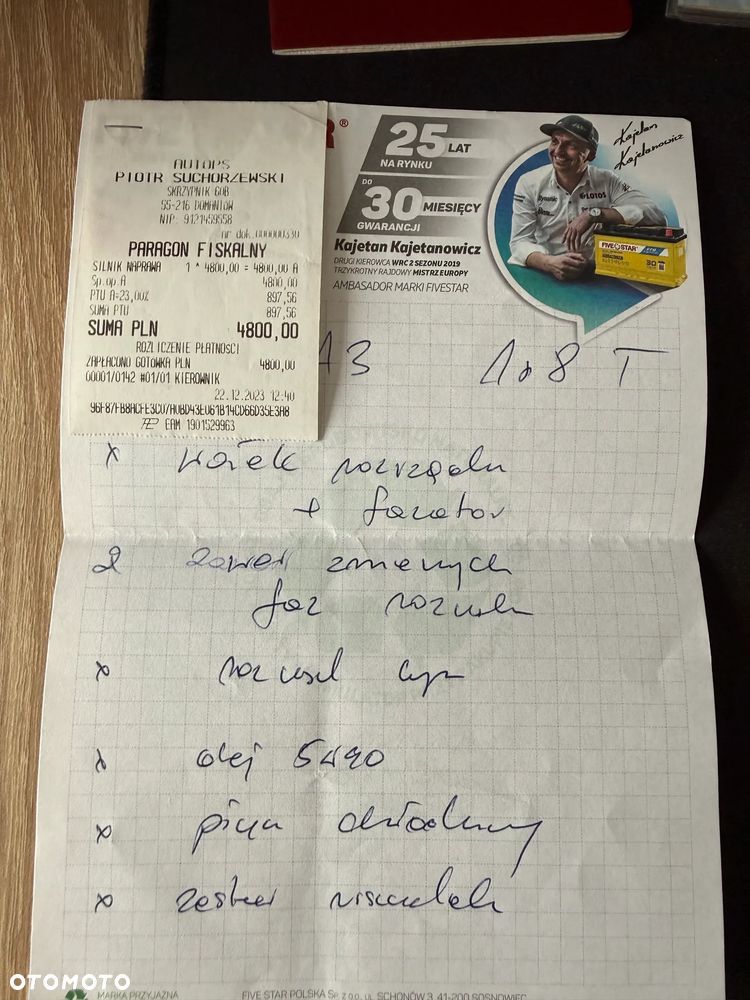 R®
25 LAT
NA RYNKU
DO
30 MIESIĘCY
GWARANCJI
Kajetan Kajetanowicz
DRUGI KIEROWCA WRC 2 SEZONU 2019
TRZYKROTNY RAJDOWY MISTRZ EUROPY
AMBASADOR MARKI FIVESTAR
Kajetan
Kajetanowicz
LOTOS
FIVE STAR
30
AUTOPS
PIOTR SUCHORZEWSKI
SKRZYPNIK 60B
55-216 DOMANIÓW
NIP: 9121459558
nr dok.000000330
PARAGON FISKALNY
SILNIK NAPRAWA 1 * 4800,00 = 4800,00 A
Sp.op.A 4800,00
PTU A=23,00% 897,56
SUMA PTU 897,56
SUMA PLN 4800,00
ROZLICZENIE PŁATNOŚCI
ZAPŁACONO GOTÓWKA PLN 4800,00
00001/0142 #01/01 KIEROWNIK
22.12.2023 12:40
EAM 1901529963
A3 1.8 T
x wałek rozrządu
+ fazator
2 zawór zmiennych
faz rozrządu
x rozrząd kpl
x olej 5W40
x płyn chłodniczy
x zestaw uszczelek
OTOMOTO
MARKA PRZYJAZNA
FIVE STAR POLSKA Sp. z o.o. ul. SCHONÓW 3, 41-200 SOSNOWIEC